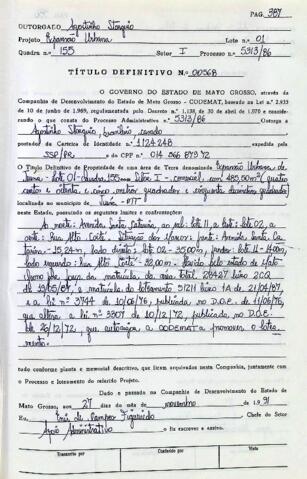 PAG. 387
OUTORGADO Agostinho Storquio
Projeto Expansão Urbana Lote n.º 01
Quadra n.º 155 Setor I Processo n.º 5313/86
TÍTULO DEFINITIVO N.º 00568
O GOVERNO DO ESTADO DE MATO GROSSO, através da
Companhia de Desenvolvimento do Estado de Mato Grosso - CODEMAT, baseado na Lei n.º 2.933
de 10 de junho de 1969, regulamentado pelo Decreto n.º 1.138 de 30 de abril de 1970 e considerando
o que consta do Processo Administrativo n.º 5313/86 Outorga a
Agostinho Storquio, brasileiro, casado
portador da Carteira de Identidade n.º 1124248 expedida pela
SSP/PR e do CPF n.º
O Título Definitivo de Propriedade de uma área de Terra denominada Expansão Urbana de
Juina - lote 01 - quadra 155 - Setor I - comercial, com 485,00m² (quatro
centos e oitenta e cinco metros quadrados
localizada no município de Juina - MT
neste Estado, possuindo os seguintes limites e confrontações:
Ao norte: Avenida Santa Catarina, ao sul: lote 11, a leste: lote 02, a
oeste: Rua Alto Coité. Situação dos Marcos: frente: Avenida Santa Ca
tarina - lado direito: lote 02 - 35,00m, fundo: lote 11
lado esquerdo: Rua Alto Coité - 32,00m.
da matrícula da área total 28427 livro 2CQ
de e matrícula do loteamento 51211 livro 1A de 21/04/87,
e a lei n.º 3744 de 10/06/76, publicada no D.O.E. de 11/06/76,
que altera a lei n.º 3307 de 10/12/72, publicada no D.O.E.
de 26/12/72, que autoriza a CODEMAT a promover o lotea
mento.
tudo conforme planta e memorial descritivo, que ficam arquivados nesta Companhia, juntamente com
o Processo e loteamento do referido Projeto.
Dado e passado na Companhia de Desenvolvimento do Estado de
Mato Grosso, aos 27 dias do mês de novembro de 1991
Eu, de Campos Figueiredo Chefe do Setor
Apoio Administrativo o fiz escrever e assino.
Transcrito por Conferido por Visto